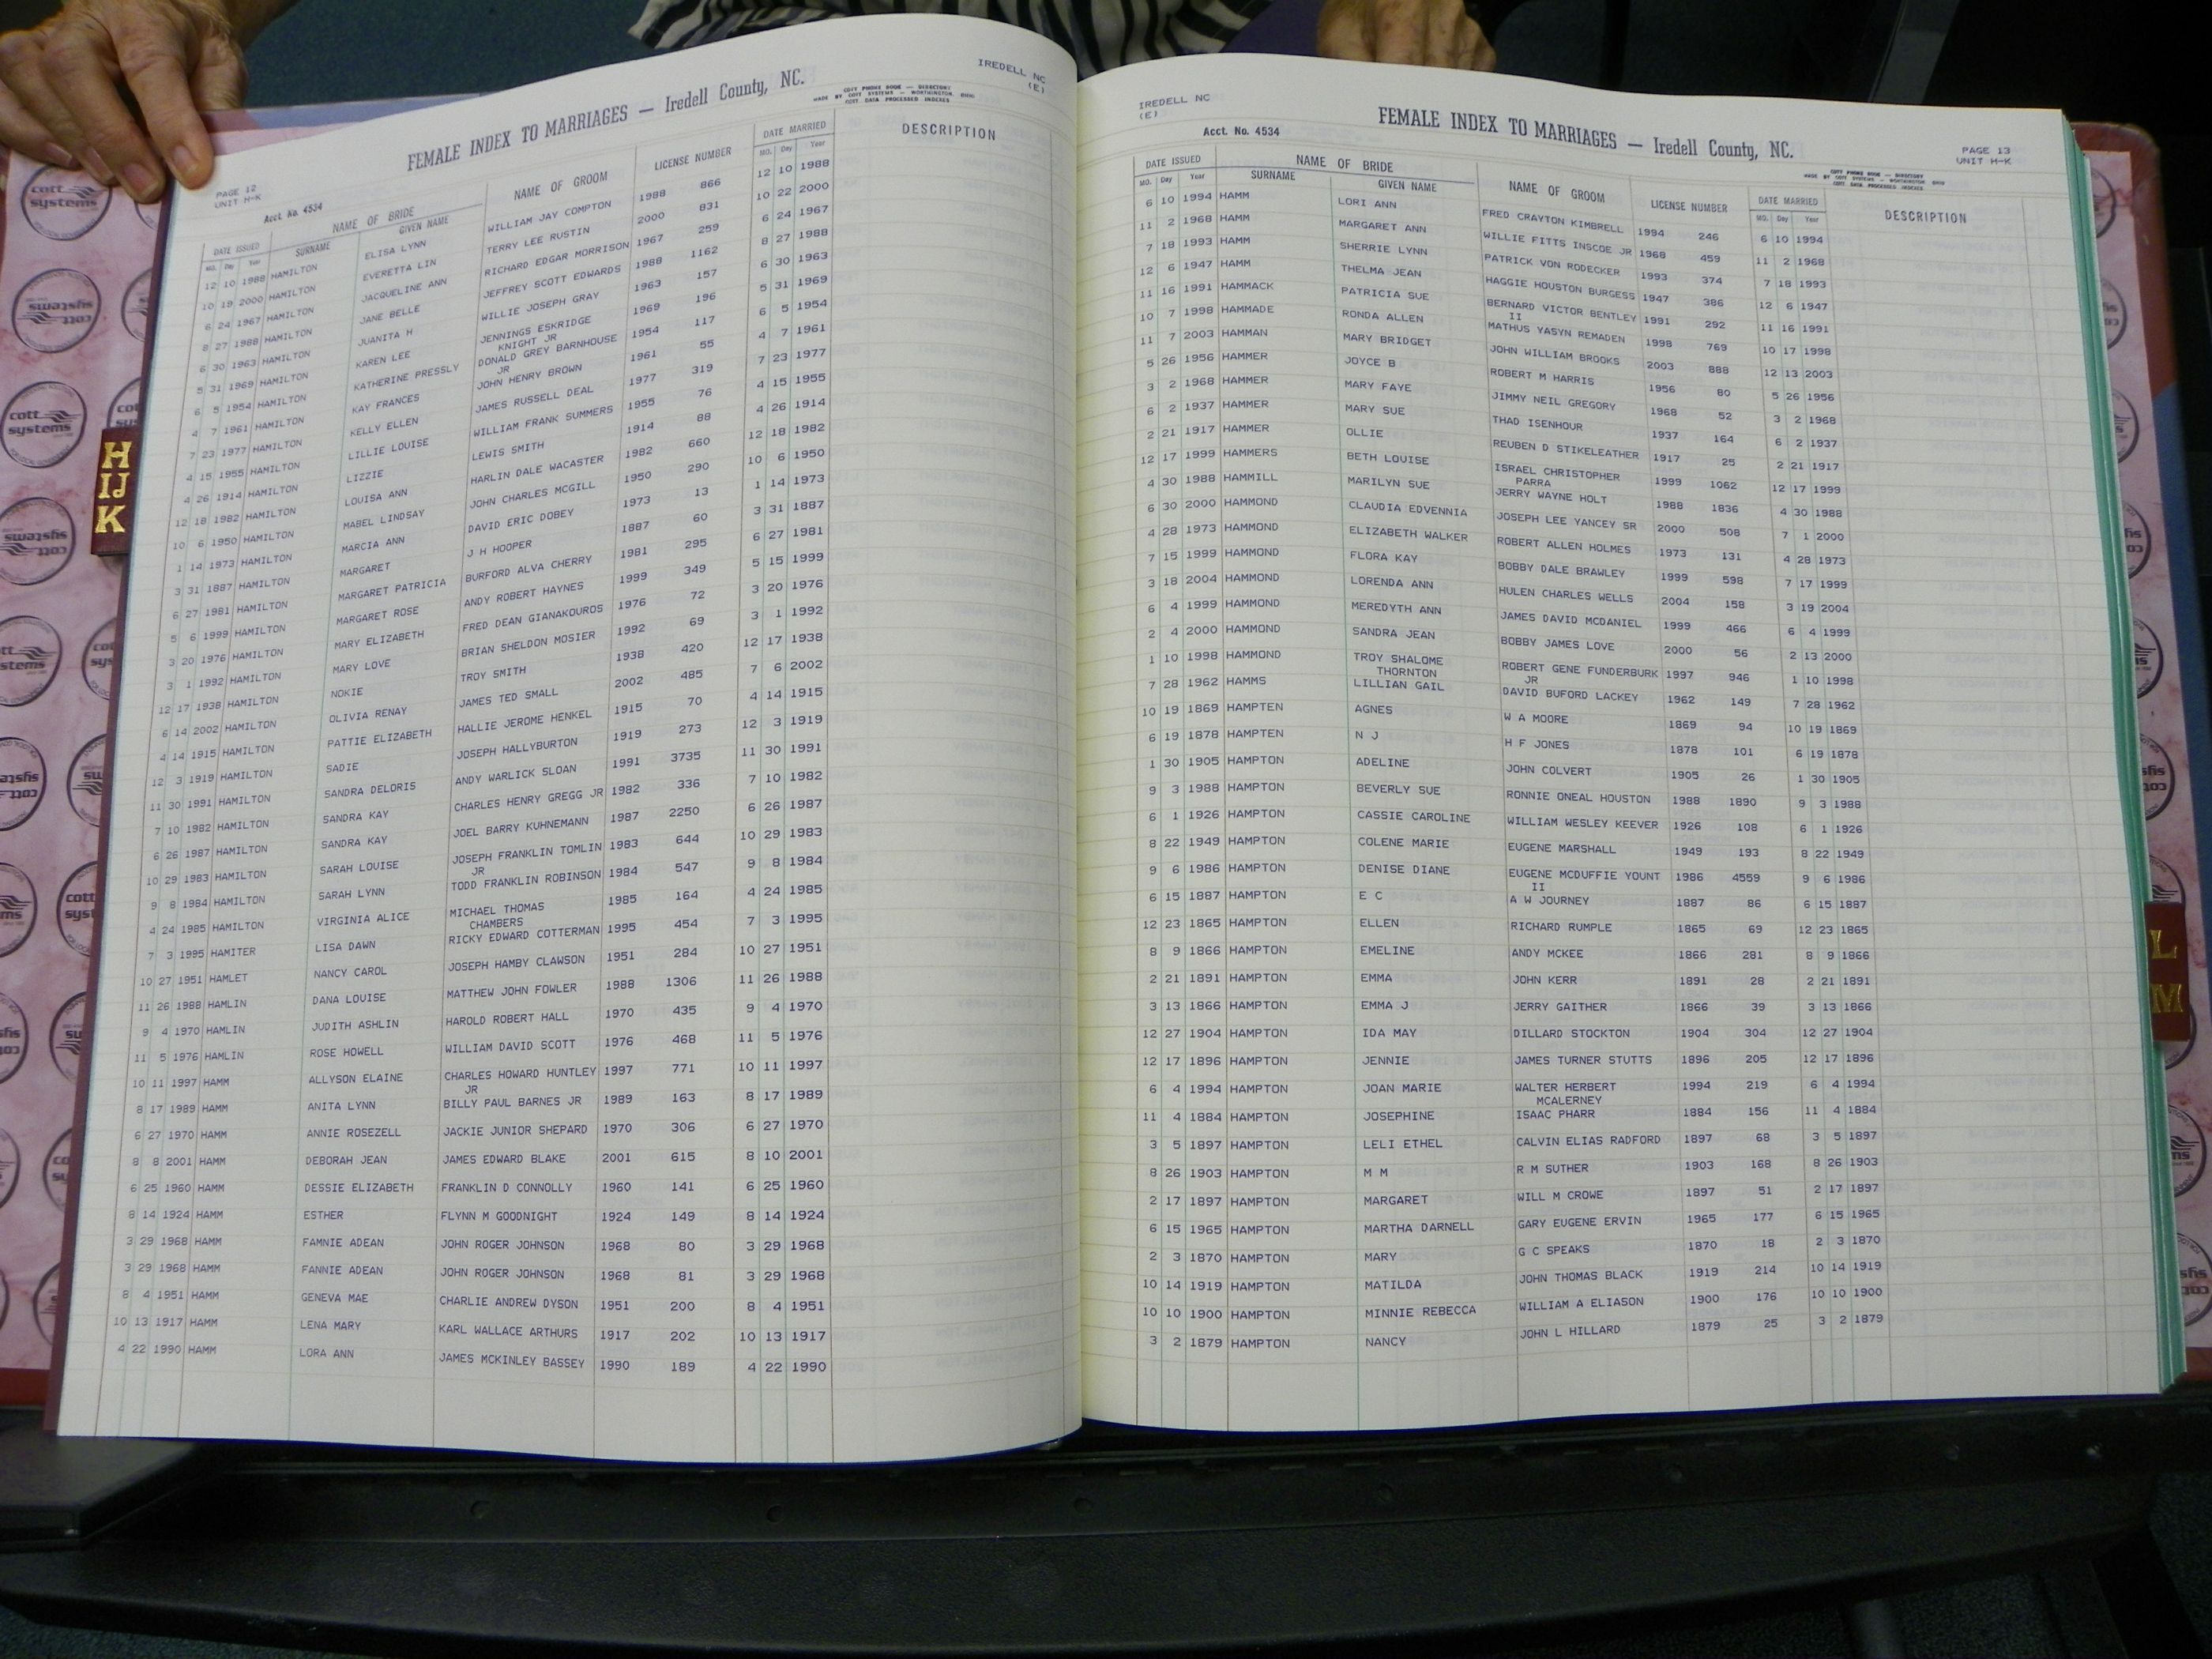 IREDELL NC
(E)
FEMALE INDEX TO MARRIAGES — Iredell County, NC.
COTT PHONE BOOK — DIRECTORY
MADE BY COTT SYSTEMS — WORTHINGTON, OHIO
COTT DATA PROCESSED INDEXES
PAGE 12
UNIT H-K
Acct. No. 4534
DATE ISSUED NAME OF BRIDE NAME OF GROOM LICENSE NUMBER DATE MARRIED DESCRIPTION
MO. Day Year SURNAME GIVEN NAME MO. Day Year
12 10 1988 HAMILTON ELISA LYNN WILLIAM JAY COMPTON 1988 866 12 10 1988
10 19 2000 HAMILTON EVERETTA LIN TERRY LEE RUSTIN 2000 831 10 22 2000
6 24 1967 HAMILTON JACQUELINE ANN RICHARD EDGAR MORRISON 1967 259 6 24 1967
8 27 1988 HAMILTON JANE BELLE JEFFREY SCOTT EDWARDS 1988 1162 8 27 1988
6 30 1963 HAMILTON JUANITA H WILLIE JOSEPH GRAY 1963 157 6 30 1963
5 31 1969 HAMILTON KAREN LEE JENNINGS ESKRIDGE 1969 196 5 31 1969
KNIGHT JR
6 5 1954 HAMILTON KATHERINE PRESSLY DONALD GREY BARNHOUSE 1954 117 6 5 1954
JR
4 7 1961 HAMILTON KAY FRANCES JOHN HENRY BROWN 1961 55 4 7 1961
7 23 1977 HAMILTON KELLY ELLEN JAMES RUSSELL DEAL 1977 319 7 23 1977
4 15 1955 HAMILTON LILLIE LOUISE WILLIAM FRANK SUMMERS 1955 76 4 15 1955
4 26 1914 HAMILTON LIZZIE LEWIS SMITH 1914 88 4 26 1914
12 18 1982 HAMILTON LOUISA ANN HARLIN DALE WACASTER 1982 660 12 18 1982
10 6 1950 HAMILTON MABEL LINDSAY JOHN CHARLES MCGILL 1950 290 10 6 1950
1 14 1973 HAMILTON MARCIA ANN DAVID ERIC DOBEY 1973 13 1 14 1973
3 31 1887 HAMILTON MARGARET J H HOOPER 1887 60 3 31 1887
6 27 1981 HAMILTON MARGARET PATRICIA BURFORD ALVA CHERRY 1981 295 6 27 1981
5 6 1999 HAMILTON MARGARET ROSE ANDY ROBERT HAYNES 1999 349 5 15 1999
3 20 1976 HAMILTON MARY ELIZABETH FRED DEAN GIANAKOUROS 1976 72 3 20 1976
3 1 1992 HAMILTON MARY LOVE BRIAN SHELDON MOSIER 1992 69 3 1 1992
12 17 1938 HAMILTON NOKIE TROY SMITH 1938 420 12 17 1938
6 14 2002 HAMILTON OLIVIA RENAY JAMES TED SMALL 2002 485 7 6 2002
4 14 1915 HAMILTON PATTIE ELIZABETH HALLIE JEROME HENKEL 1915 70 4 14 1915
12 3 1919 HAMILTON SADIE JOSEPH HALLYBURTON 1919 273 12 3 1919
11 30 1991 HAMILTON SANDRA DELORIS ANDY WARLICK SLOAN 1991 3735 11 30 1991
7 10 1982 HAMILTON SANDRA KAY CHARLES HENRY GREGG JR 1982 336 7 10 1982
6 26 1987 HAMILTON SANDRA KAY JOEL BARRY KUHNEMANN 1987 2250 6 26 1987
10 29 1983 HAMILTON SARAH LOUISE JOSEPH FRANKLIN TOMLIN 1983 644 10 29 1983
JR
9 8 1984 HAMILTON SARAH LYNN TODD FRANKLIN ROBINSON 1984 547 9 8 1984
4 24 1985 HAMILTON VIRGINIA ALICE MICHAEL THOMAS 1985 164 4 24 1985
CHAMBERS
7 3 1995 HAMITER LISA DAWN RICKY EDWARD COTTERMAN 1995 454 7 3 1995
10 27 1951 HAMLET NANCY CAROL JOSEPH HAMBY CLAWSON 1951 284 10 27 1951
11 26 1988 HAMLIN DANA LOUISE MATTHEW JOHN FOWLER 1988 1306 11 26 1988
9 4 1970 HAMLIN JUDITH ASHLIN HAROLD ROBERT HALL 1970 435 9 4 1970
11 5 1976 HAMLIN ROSE HOWELL WILLIAM DAVID SCOTT 1976 468 11 5 1976
10 11 1997 HAMM ALLYSON ELAINE CHARLES HOWARD HUNTLEY 1997 771 10 11 1997
JR
8 17 1989 HAMM ANITA LYNN BILLY PAUL BARNES JR 1989 163 8 17 1989
6 27 1970 HAMM ANNIE ROSEZELL JACKIE JUNIOR SHEPARD 1970 306 6 27 1970
8 8 2001 HAMM DEBORAH JEAN JAMES EDWARD BLAKE 2001 615 8 10 2001
6 25 1960 HAMM DESSIE ELIZABETH FRANKLIN D CONNOLLY 1960 141 6 25 1960
8 14 1924 HAMM ESTHER FLYNN M GOODNIGHT 1924 149 8 14 1924
3 29 1968 HAMM FAMNIE ADEAN JOHN ROGER JOHNSON 1968 80 3 29 1968
3 29 1968 HAMM FANNIE ADEAN JOHN ROGER JOHNSON 1968 81 3 29 1968
8 4 1951 HAMM GENEVA MAE CHARLIE ANDREW DYSON 1951 200 8 4 1951
10 13 1917 HAMM LENA MARY KARL WALLACE ARTHURS 1917 202 10 13 1917
4 22 1990 HAMM LORA ANN JAMES MCKINLEY BASSEY 1990 189 4 22 1990
IREDELL NC
(E)
Acct. No. 4534
FEMALE INDEX TO MARRIAGES — Iredell County, NC.
PAGE 13
UNIT H-K
COTT PHONE BOOK — DIRECTORY
MADE BY COTT SYSTEMS — WORTHINGTON, OHIO
COTT DATA PROCESSED INDEXES
DATE ISSUED NAME OF BRIDE NAME OF GROOM LICENSE NUMBER DATE MARRIED DESCRIPTION
MO. Day Year SURNAME GIVEN NAME MO. Day Year
6 10 1994 HAMM LORI ANN FRED CRAYTON KIMBRELL 1994 246 6 10 1994
11 2 1968 HAMM MARGARET ANN WILLIE FITTS INSCOE JR 1968 459 11 2 1968
7 18 1993 HAMM SHERRIE LYNN PATRICK VON RODECKER 1993 374 7 18 1993
12 6 1947 HAMM THELMA JEAN HAGGIE HOUSTON BURGESS 1947 386 12 6 1947
11 16 1991 HAMMACK PATRICIA SUE BERNARD VICTOR BENTLEY 1991 292 11 16 1991
II
10 7 1998 HAMMADE RONDA ALLEN MATHUS YASYN REMADEN 1998 769 10 17 1998
11 7 2003 HAMMAN MARY BRIDGET JOHN WILLIAM BROOKS 2003 888 12 13 2003
5 26 1956 HAMMER JOYCE B ROBERT M HARRIS 1956 80 5 26 1956
3 2 1968 HAMMER MARY FAYE JIMMY NEIL GREGORY 1968 52 3 2 1968
6 2 1937 HAMMER MARY SUE THAD ISENHOUR 1937 164 6 2 1937
2 21 1917 HAMMER OLLIE REUBEN D STIKELEATHER 1917 25 2 21 1917
12 17 1999 HAMMERS BETH LOUISE ISRAEL CHRISTOPHER 1999 1062 12 17 1999
PARRA
4 30 1988 HAMMILL MARILYN SUE JERRY WAYNE HOLT 1988 1836 4 30 1988
6 30 2000 HAMMOND CLAUDIA EDVENNIA JOSEPH LEE YANCEY SR 2000 508 7 1 2000
4 28 1973 HAMMOND ELIZABETH WALKER ROBERT ALLEN HOLMES 1973 131 4 28 1973
7 15 1999 HAMMOND FLORA KAY BOBBY DALE BRAWLEY 1999 598 7 17 1999
3 18 2004 HAMMOND LORENDA ANN HULEN CHARLES WELLS 2004 158 3 19 2004
6 4 1999 HAMMOND MEREDYTH ANN JAMES DAVID MCDANIEL 1999 466 6 4 1999
2 4 2000 HAMMOND SANDRA JEAN BOBBY JAMES LOVE 2000 56 2 13 2000
1 10 1998 HAMMOND TROY SHALOME ROBERT GENE FUNDERBURK 1997 946 1 10 1998
THORNTON JR
7 28 1962 HAMMS LILLIAN GAIL DAVID BUFORD LACKEY 1962 149 7 28 1962
10 19 1869 HAMPTEN AGNES W A MOORE 1869 94 10 19 1869
6 19 1878 HAMPTEN N J H F JONES 1878 101 6 19 1878
1 30 1905 HAMPTON ADELINE JOHN COLVERT 1905 26 1 30 1905
9 3 1988 HAMPTON BEVERLY SUE RONNIE ONEAL HOUSTON 1988 1890 9 3 1988
6 1 1926 HAMPTON CASSIE CAROLINE WILLIAM WESLEY KEEVER 1926 108 6 1 1926
8 22 1949 HAMPTON COLENE MARIE EUGENE MARSHALL 1949 193 8 22 1949
9 6 1986 HAMPTON DENISE DIANE EUGENE MCDUFFIE YOUNT 1986 4559 9 6 1986
II
6 15 1887 HAMPTON E C A W JOURNEY 1887 86 6 15 1887
12 23 1865 HAMPTON ELLEN RICHARD RUMPLE 1865 69 12 23 1865
8 9 1866 HAMPTON EMELINE ANDY MCKEE 1866 281 8 9 1866
2 21 1891 HAMPTON EMMA JOHN KERR 1891 28 2 21 1891
3 13 1866 HAMPTON EMMA J JERRY GAITHER 1866 39 3 13 1866
12 27 1904 HAMPTON IDA MAY DILLARD STOCKTON 1904 304 12 27 1904
12 17 1896 HAMPTON JENNIE JAMES TURNER STUTTS 1896 205 12 17 1896
6 4 1994 HAMPTON JOAN MARIE WALTER HERBERT 1994 219 6 4 1994
MCALERNEY
11 4 1884 HAMPTON JOSEPHINE ISAAC PHARR 1884 156 11 4 1884
3 5 1897 HAMPTON LELI ETHEL CALVIN ELIAS RADFORD 1897 68 3 5 1897
8 26 1903 HAMPTON M M R M SUTHER 1903 168 8 26 1903
2 17 1897 HAMPTON MARGARET WILL M CROWE 1897 51 2 17 1897
6 15 1965 HAMPTON MARTHA DARNELL GARY EUGENE ERVIN 1965 177 6 15 1965
2 3 1870 HAMPTON MARY G C SPEAKS 1870 18 2 3 1870
10 14 1919 HAMPTON MATILDA JOHN THOMAS BLACK 1919 214 10 14 1919
10 10 1900 HAMPTON MINNIE REBECCA WILLIAM A ELIASON 1900 176 10 10 1900
3 2 1879 HAMPTON NANCY JOHN L HILLARD 1879 25 3 2 1879
H
IJ
K
L
M
cott
systems